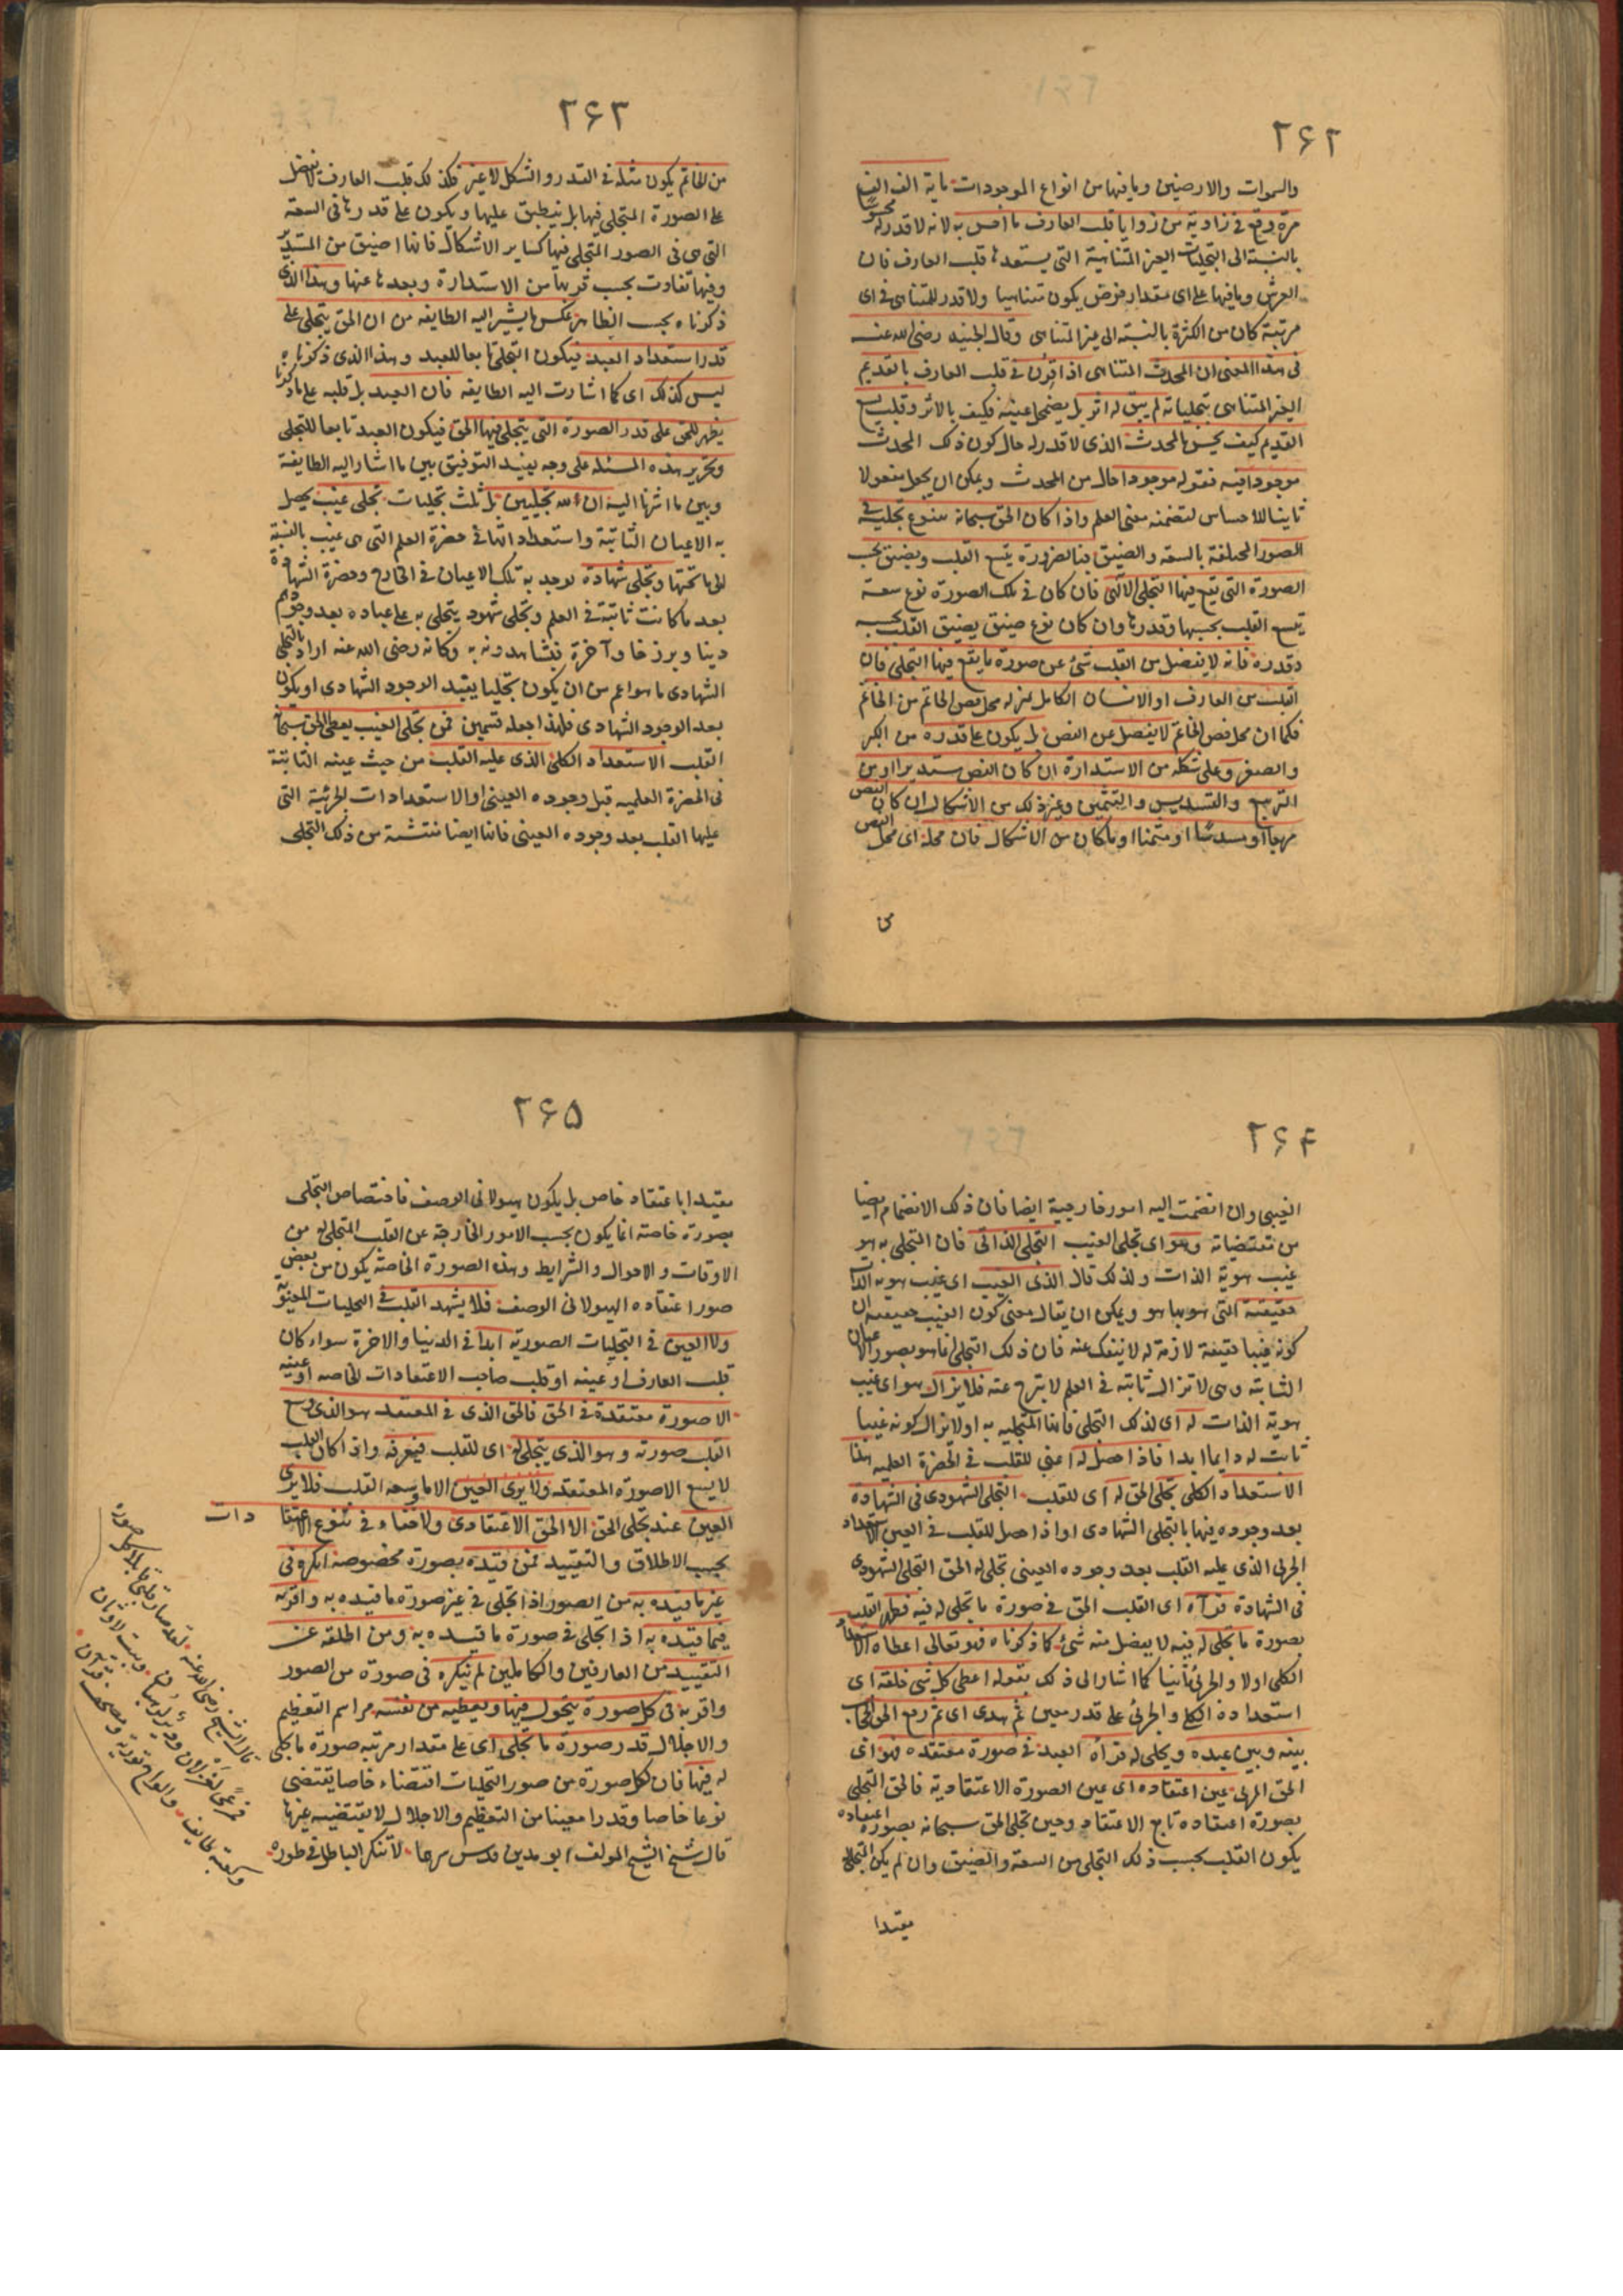 ۲۶۲
والسموات والارضين وما فيها من انواع الموجودات ماية الف الف
مرة وقع في زاوية من زوايا قلب العارف ما احس به لانه لا قدر له محسوسا
بالنسبة الى التجليات الغير المتناهية التى يستعد لها قلب العارف فان
العرش وما فيها على اى مقدار فرض يكون متناهيا ولا قدر للمتناهى في اى
مرتبة كان من الكثرة بالنسبة الى غير المتناهى وقال الجنيد رضى الله عنه
فى هذا المعنى ان المحدث المتناهى اذا قرن في قلب العارف بالقديم
الغير المتناهى بتجلياته لم يبق له اثر بل يضمحل عينه فكيف بالاثر وقلب يسع
القديم كيف يحس بالمحدث الذى لا قدر له حال كون ذلك المحدث
موجودا فيه فقوله موجودا حال من المحدث ويمكن ان يجعل مفعولا
ثانيا للاحساس لتضمنه معنى العلم واذا كان الحق سبحانه يتنوع تجليه في
الصور المختلفة بالسعة والضيق فبالضرورة يتسع القلب ويضيق بحسب
الصورة التى يقع فيها التجلى الالهى فان كان في تلك الصورة نوع سعة
يتسع القلب بحسبها وقدرها وان كان نوع ضيق يضيق القلب بحسبه
وقدره فانه لا يفضل من القلب شئ عن صورة ما يقع فيها التجلى فان
القلب من العارف او الانسان الكامل بمنزلة محل فص الخاتم من الخاتم
فكما ان محل فص الخاتم لا يفضل عن الفص بل يكون على قدره من الكبر
والصغر وعلى شكله من الاستدارة ان كان الفص مستديرا او من
التربيع والتسديس والتثمين وغير ذلك من الاشكال ان كان الفص
مربعا او مسدسا او مثمنا او ما كان من الاشكال فان محله اى محل الفص
من
۲۶۳
من الخاتم يكون مثله في القدر والشكل لا غير فكذلك قلب العارف لا يفضل
على الصورة المتجلى فيها بل ينطبق عليها ويكون على قدرها فى السعة
التى هى فى الصور المتجلى فيها كساير الاشكال فانها اضيق من المستدير
وفيها تفاوت بحسب قربها من الاستدارة وبعدها عنها وهذا الذى
ذكرناه بحسب الظاهر عكس ما يشير اليه الطايفه من ان الحق يتجلى على
قدر استعداد العبد فيكون التجلى تابعا للعبد وهذا الذى ذكرناه
ليس كذلك اى كما اشارت اليه الطايفه فان العبد بل قلبه على ما ذكرنا
يظهر للحق على قدر الصورة التى يتجلى فيها الحق فيكون العبد تابعا للتجلى
وتحرير هذه المسئلة على وجه يفيد التوفيق بين ما اشار اليه الطايفة
وبين ما اشرنا اليه ان لله تجليين بل ثلث تجليات تجلى غيب يحصل
به الاعيان الثابتة واستعداداتها في حضرة العلم التى هى غيب بالنسبة
الى ما تحتها وتجلى شهادة يوجد به تلك الاعيان في الخارج وحضرة الشهادة
بعد ما كانت ثابتة في العلم وتجلى شهود يتجلى به على عباده بعد وجودهم
دينا وبرزخا وآخرة فيشاهدونه به وكانه رضى الله عنه اراد بالتجلى
الشهادى ما هو اعم من ان يكون تجليا يفيد الوجود الشهادى او يكون
بعد الوجود الشهادى فلهذا جعله قسمين فمن تجلى الغيب يعطى الحق سبحانه
القلب الاستعداد الكلى الذى عليه القلب من حيث عينه الثابتة
فى الحضرة العلميه قبل وجوده العينى او الاستعدادات الجزئية التى
عليها القلب بعد وجوده العينى فانها ايضا منتشئة من ذلك التجلى
۲۶۴
الغيبى وان انضمت اليه امور خارجية ايضا فان ذلك الانضمام ايضا
من مقتضياته وهو اى تجلى الغيب التجلى الذاتى فان التجلى به هو
غيب هوية الذات ولذلك قال الذى الغيب اى غيب هويه الذات
حقيقته التى هو بها هو ويمكن ان يقال معنى كون الغيب حقيقته ان
كونه غيبا حقيقة لازمة له لا ينفك عنه فان ذلك التجلى انما هو بصور الاعيان
الثابته وهى لا تزال ثابتة فى العلم لا تبرح عنه فلا يزال هو اى غيب
هوية الذات له اى لذلك التجلى فانها المتجليه به او لا يزال كونه غيبا
ثابت له دايما ابدا فاذا حصل له اعنى للقلب في الحضرة العلميه هذا
الاستعداد الكلى تجلى الحق له اى للقلب التجلى الشهودى فى الشهادة
بعد وجوده فيها بالتجلى الشهادى او اذا حصل للقلب في العين الاستعداد
الجزئى الذى عليه القلب بعد وجوده العينى تجلى له الحق التجلى الشهودى
فى الشهادة فرآه اى القلب الحق في صورة ما تجلى له فيه فظهر القلب
بصورة ما تجلى له فيه لا يفضل منه شئ كما ذكرناه فهو تعالى اعطاه الاستعداد
الكلى اولا والجزئى ثانيا كما اشار الى ذلك بقوله اعطى كل شى خلقه اى
استعداده الكلى والجزئى على قدر معين ثم هدى اى ثم رفع الحق الحجاب
بينه وبين عبده وتجلى له فرآه العبد في صورة معتقده فهو اى
الحق المرئى عين اعتقاده اى عين الصورة الاعتقادية فالحق التجلى
بصورة اعتقاده تابع الاعتقاد وحين تجلى الحق سبحانه بصورة اعتقاده
يكون القلب بحسب ذلك التجلى من السعة والضيق وان لم يكن التجلى
مقيدا
۲۶۵
مقيدا باعتقاد خاص بل يكون هيولانى الوصف فاختصاص التجلى
بصورة خاصة انما يكون بحسب الامور الخارجة عن القلب المتجلى له من
الاوقات والاحوال والشرايط وهذه الصورة الخاصة يكون من بعض
صور اعتقاده الهيولانى الوصف فلا يشهد القلب في التجليات المعنوية
ولا العين في التجليات الصورية ابدا في الدنيا والاخرة سواء كان
قلب العارف او عينه او قلب صاحب الاعتقادات الخاصه او عينه
الا صورة معتقدة فى الحق فالحق الذى في المعتقد هو الذى وسع
القلب صورته وهو الذى يتجلى له اى للقلب فيعرفه واذا كان القلب
لا يسع الا صورة المعتقد ولا يرى العين الا ما يسعه القلب فلا يرى
العين عند تجلى الحق الا الحق الاعتقادى ولا خفاء فى تنوع الاعتقا دات
بحسب الاطلاق والتقييد فمن قيده بصورة مخصوصة انكره فى
غير ما قيده به من الصور اذا تجلى في غير صورة ما قيده به واقر به
فيما قيده به اذا تجلى في صورة ما قيده به ومن اطلقه عن
التقييد من العارفين والكاملين لم ينكره فى صورة من الصور
واقر به فى كل صورة يتحول فيها ويعطيه من نفسه مراسم التعظيم
والاجلال قدر صورة ما تجلى اى على مقدار مرتبه صورة ما تجلى
له فيها فان لكل صورة من صور التجليات اقتضاء خاصا يقتضى
نوعا خاصا وقدرا معينا من التعظيم والاجلال لا يقتضيه غيرها
قال شيخ الشيخ المولف ابو مدين قدس سرهما لا تنكر الباطل في طوره
قال الشيخ رضى الله عنه لقد صار قلبى قابلا كل صورة
فمرعى لغزلان ودير لرهبان وبيت لاوثان
وكعبة طايف والواح تورية ومصحف قرآن